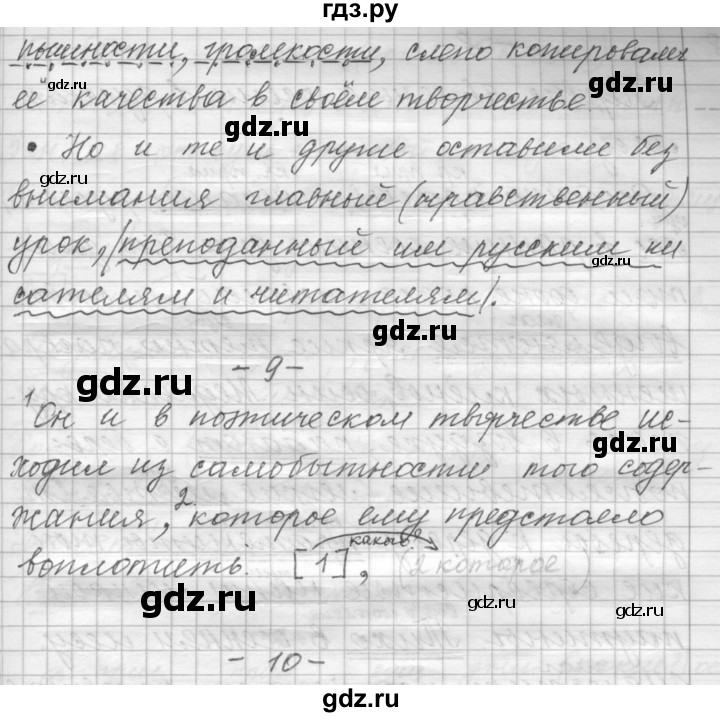 гдз.ру
пышности, громкости, слепо копировали
её качества в своём творчестве gdz.ru
gdz.ru
• Но и те и другие оставили без
gdz.ru
внимания главный (нравственный)
урок, /преподанный им русским пи
gdz.ru
сателям и читателям/.
gdz.ru
- 9 -
gdz.ru
1 Он и в поэтическом творчестве ис-
gdz.ru
ходил из самобытности того содер-
жания, 2 которое ему предстояло
какого?
воплотить. [1], (2 которое )
gdz.ru gdz.ru
- 10 -
gdz.ru